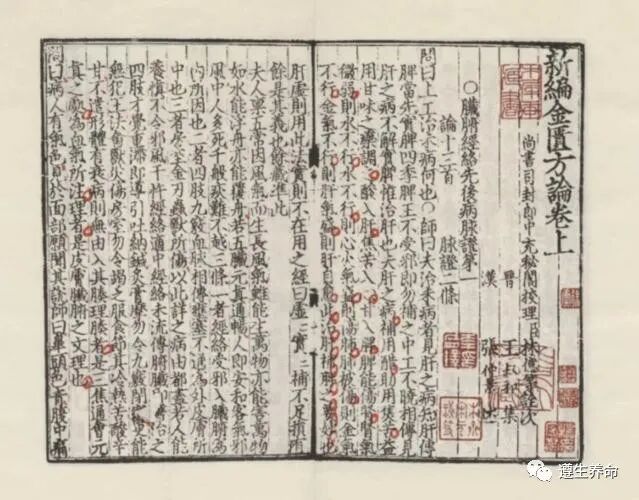 新編金匱方論卷上
尚書司封郎中充秘閣校理臣林億等詮次
晉 王叔和集
漢 張仲景述
○臟腑經絡先後病脉證第一
論十三首 脉證二條
問曰上工治未病何也○師曰夫治未病者見肝之病知肝傳
脾當先實脾四季脾王不受邪即勿補之中工不曉相傳見
肝之病不解實脾惟治肝也夫肝之病補用酸助用焦苦益
用甘味之藥調之酸入肝焦苦入心甘入脾脾能傷腎腎氣
微弱則水不行水不行則心火氣盛則傷肺肺被傷則金氣
不行金氣不行則肝氣盛則肝自愈此治肝補脾之要妙也
肝虛則用此法實則不在用之經曰虛虛實實補不足損有
餘是其義也餘藏準此
夫人稟五常因風氣而生長風氣雖能生萬物亦能害萬物
如水能浮舟亦能覆舟若五臟元真通暢人即安和客氣邪
風中人多死千般疢難不越三條一者經絡受邪入臟腑為
內所因也二者四肢九竅血脉相傳壅塞不通為外皮膚所
中也三者房室金刃蟲獸所傷以此詳之病由都盡若人能
養慎不令邪風干忤經絡適中經絡未流傳腑臟即醫治之
四肢才覺重滯即導引吐納鍼灸膏摩勿令九竅閉塞更能
無犯王法禽獸災傷房室勿令竭之服食節其冷熱苦酸辛
甘不遺形體有衰病則無由入其腠理腠者是三焦通會元
真之處為血氣所注理者是皮膚臟腑之文理也
問曰病人有氣色見於面部願聞其說師曰鼻頭色青腹中痛
遵生养命